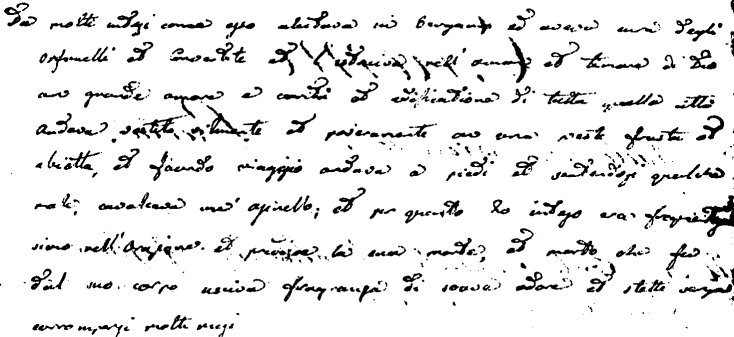 Da molti intesi come esso abitava in Bergamo et aveva cura degli
orfanelli et convertite et nell' amore et timore di Dio
con grande amore e carità et edificatione di tutta quella città
andava vestito vilmente et poveramente con una veste frusta et
abietta, et facendo viaggio andava a piedi et sentendosi qualche
male, cavalcava un' asinello; et per quanto ho inteso era
simo nell'Orazione et predisse la sua morte, et morto che fu
dal suo corpo usciva fragranza di soave odore et stette senza
corrompersi molti mesi